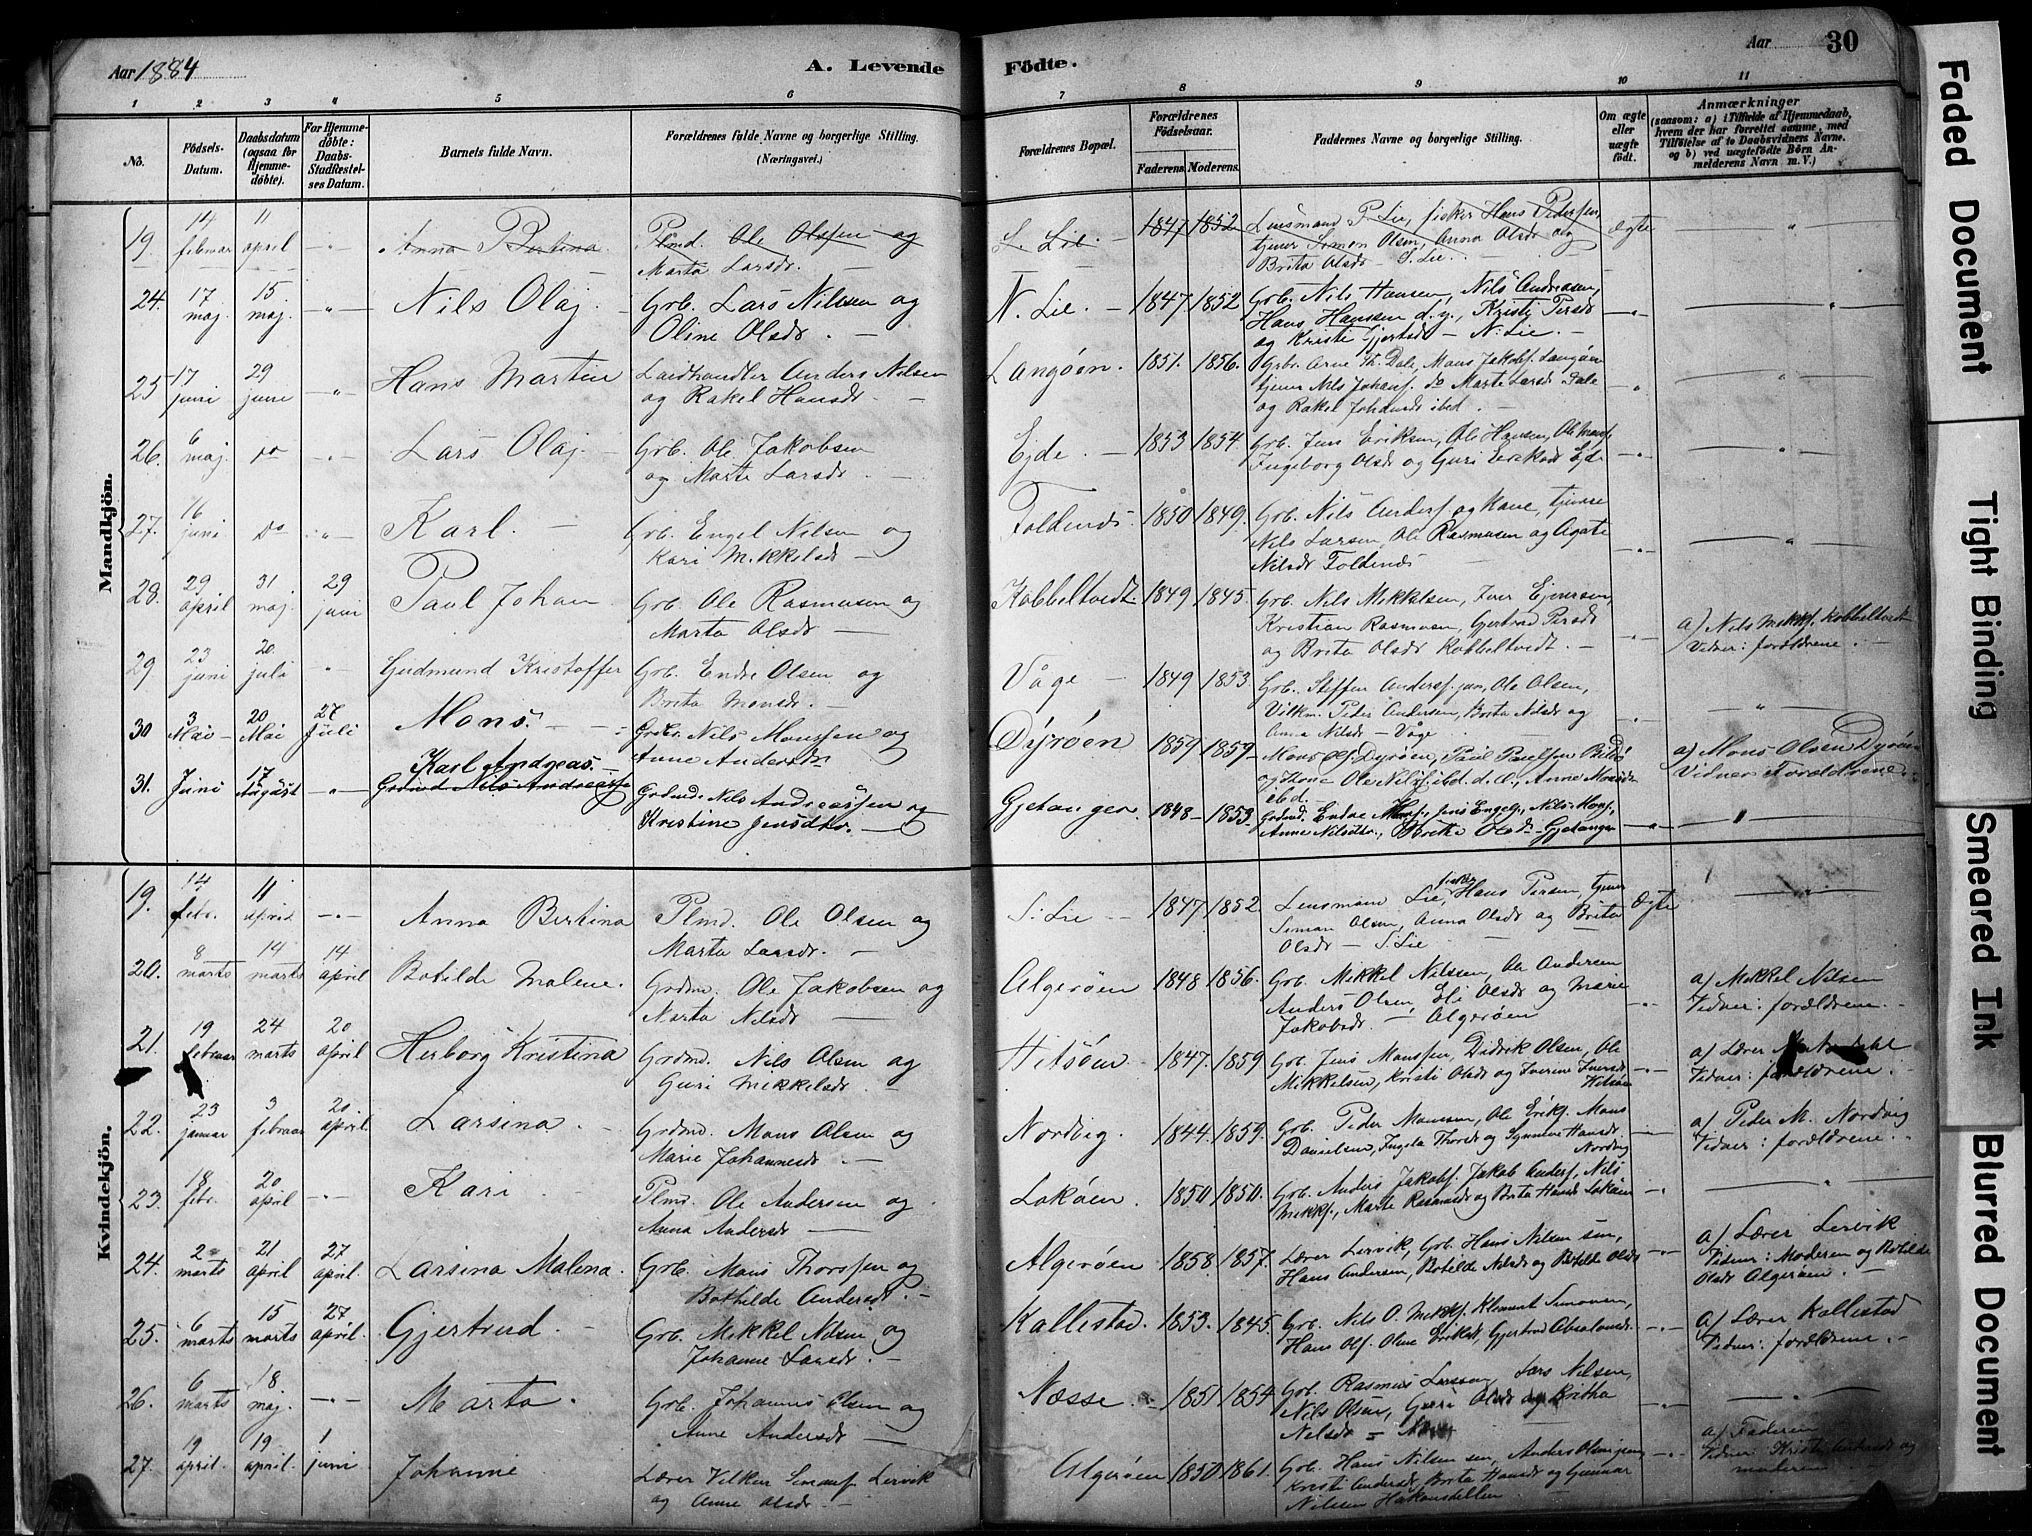 Aar 1884 A. Levende
Födte. Aar 30
1 2 3 4 5 6
7 8 9 10 11
No.
Födsels-Datum.
Daabsdatum (ogsaa for Hjemmedöbte).
For Hjemmedöbte: Daabs-Stadfæstelses Datum.
Barnets fulde Navn.
Forældrenes fulde Navne og borgerlige Stilling. (Næringsvei.)
Forældrenes Bopæl.
Forældrenes Födselsaar.
Faderens. Moderens.
Faddernes Navne og borgerlige Stilling.
Om ægte eller uægte födt.
Anmærkninger
(saasom: a) i Tilfælde af Hjemmedaab, hvem der har forrettet samme, med Tilföielse af to Daabsvidners Navne. og b) ved uægtefödte Börn Anmelderens Navn m. V.)
Mandkjön.
19. 14 februar 11 april -"- Anna Bertina Plmd. Ole Olsen og Marta Larsdr. S. Lie. 1847 1852 Lensmand P. Lie, fisker Hans Pedersen, tjener Simon Olsen, Anna Olsdr og Brita Olsdr - S. Lie. Ægte "
24. 17 maj. 15 maj. -"- Nils Olaj. Grb. Lars Nilssen og Oline Olsdr. N. Lie. 1847 1852 Grb. Nils Hansen, Nils Andreasen, Hans Hanssen d. y., Kristi Persdr og Kristi Gjertsdr - N. Lie. -"- "
25 17 juni 29 juni -"- Hans Martin Landhandler Anders Nilsen og Rakel Hansdr. Langöen. 1851. 1856. Grb. Arne Th. Dale, Mons Jakobs. Langöen tjener Nils Johans. do Marte Larsdr Dale og Rakel Johansdr ibed. -"- "
26. 6 maj. do -"- Lars Olaj. Grb. Ole Jakobsen og Marte Larsdr. Ejde. 1853 1854. Grb. Jens Eriksen, Ole Hansen, Ole Monss. Ingeborg Olsdr og Guri Eriksdr Ejde -"- "
27. 16 juni do -"- Karl. Grb. Engel Nilsen og Kari Mikkelsdr Foldenes. 1850 1849. Grb. Nils Anders. og Kone, tjenere Nils Larsen, Ole Rasmusen og Agate Nilsdr Foldenes -"- "
28. 29 april 31 maj. 29 juni Paul Johan Grb. Ole Rasmusen og Marta Olsdr Kobbeltvedt. 1849 1845. Grb. Nils Mikkelsen, Iver Ejversen, Kristian Rasmusen, Gjertrud Persdr og Brita Olsdr Kobbeltvedt. -"- a) Nils Mikks. Kobbeltvedt Vidner: forældrene.
29 23 juni 20 juli " Gudmund Kristoffer Grb. Endre Olsen og Brita Monsdr. Våge 1849 1853. Grb. Steffen Anders. jun, Ole Olsen, Vilkm. Peder Andersen, Berta Nilsdr og Anna Nilsdr - Våge -"- "
30 3 Mai 20 Mai 27 Juli Mons. Grbr. Nils Monssen og Anne Andersdtr Dyröen 1859 1859 Mons Ols. Dyröen, Paul Paulssen Bildö og Kone Ole Nilss. ibd. d. æ., Anne Monsdr ibd. a) Mons Olsen Dyröen Vidner Forældrene
31. Juni 17 August -"- Karl Andreas. Grdmd Nils Andreassen Grdmd. Nils Andreassen og Kristine Jensdtr. Gjetanger 1848 1853 Grdmd. Endre Mons., Jens Engels., Nils Mons., Anne Nilsdtr., Brite Olsdr - Gjetanger -"- "
Kvindekjön.
19. 14 febr. 11 april -"- Anna Bertina Plmd. Ole Olsen og Marta Larsdr. S. Lie 1847 1852 Lensmand Lie, fisker Hans Persen, tjener Simon Olsen, Anna Olsdr og Brita Olsdr - S. Lie Ægte "
20. 8 marts 14 marts 14 april Botilde Malene. Grdmd. Ole Jakobsen og Marta Nilsdr Algeröen 1848 1856. Grb. Mikkel Nilssen, Ole Andersen Anders Olsen, Eli Olsdr og Marie Jakobsdr. - Algeröen -"- a) Mikkel Nilsen Vidner: forældrene.
21. 19 februar 24 marts 20 april Herborg Kristina Grdmd. Nils Olsen og Guri Mikkelsdr. Hitsöen 1847. 1859 Grb. Jens Monssen, Didrik Olsen, Ole Mikkelsen, Kristi Olsdr og Iverine Iversdr Hitsöen -"- a) Lærer Vidner: forældrene.
22. 23 januar 3 februar 20. april. Larsina. Grdmd. Mons Olsen og Marie Johannesdr. Nordvig. 1844. 1859. Grb. Peder Monssen, Ole Eriks. Mons Danielsen, Ingela Thorsdr og Synneve Hansdr. Nordvig -"- a) Peder M. Nordvig Vidner: forældrene.
23. 18 febr. 20 april -"- Kari Plmd. Ole Andersen og Anna Andersdr Loköen. 1850 1850. Grb. Anders Jakobs. Jakob Anders., Nils Mikks., Marte Rasmusdr og Brita Hansdr Loköen -"- "
24. 2 marts 21 april 27 april. Larsina Malena. Grb. Mons Thorssen og Bothilde Andersdr. Algeröen 1858. 1857. Lærer Lervik, Grb. Hans Nilsen sen, Hans Andersen, Botilde Nilsdr og Botilde Olsdr -"- a) Lærer Lervik Vidner: Moderen og Botilde Olsdr Algeröen.
25. 6 marts 15 marts 27 april. Gjertrud. Grb. Mikkel Nilsen og Johanne Larsdr. Kallestad. 1853. 1845. Grb. Nils O. Mikks. Klement Simonsen, Hans Ols. Oline Eriksdr, Gjertrud Absalonsdr. -"- a) Lærer Kallestad Vidner: forældrene.
26. 6 marts 18 maj. -"- Marta. Grb. Johannes Olsen og Anne Andersdr Næsse. 1851 1854 Grb. Rasmus Larssen, Lars Nilsen, Nils Olsen, Guri Olsdr og Britha Nilsdr -"- "
27. 19 april. 19 april. 1 juni Johanne Lærer Vilken Simons. Lervik og Anne Olsdr Algeröen 1850 1861. Grb. Hans Nilsen sen, Anders Olsen Kristi Andersdr, Berta Hansdr og Gunnar Nilssen Håkonshellen -"- a) Faderen Vidner: Kristi Andersdr og moderen
Faded Document
Tight Binding
Smeared Ink
Blurred Document